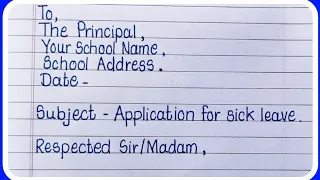 To,
The Principal,
Your School Name,
School Address.
Date -
Subject - Application for sick leave.
Respected Sir/Madam,